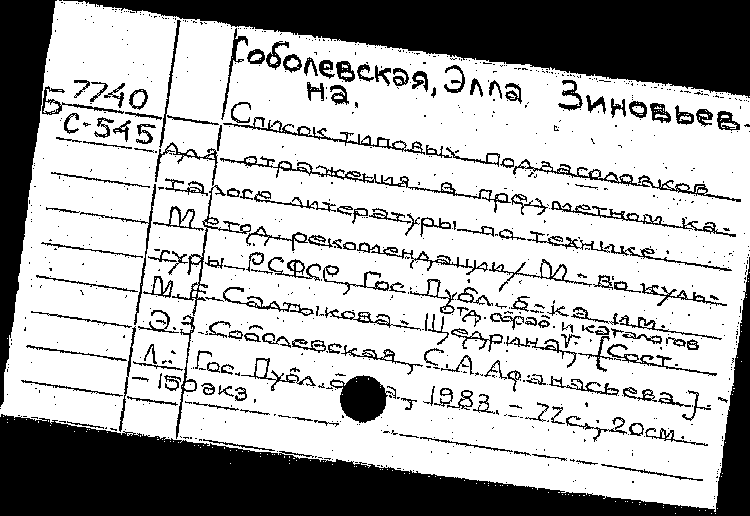 Соболевская, Элла Зиновьев-
на.
Б 7740
С-545
Список типовых подзаголовков
для отражения в предметном ка-
талоге литературы по технике:
Метод. рекомендации / М-во куль-
туры РСФСР, Гос. Публ. б-ка им.
М.Е. Салтыкова-Щедрина, отд. обраб. и каталогов; [Сост.
Э.З. Соболевская, С.А. Афанасьева]. -
Л.: Гос. Публ. б-ка, 1983. - 77с.; 20см.
- 150 экз.